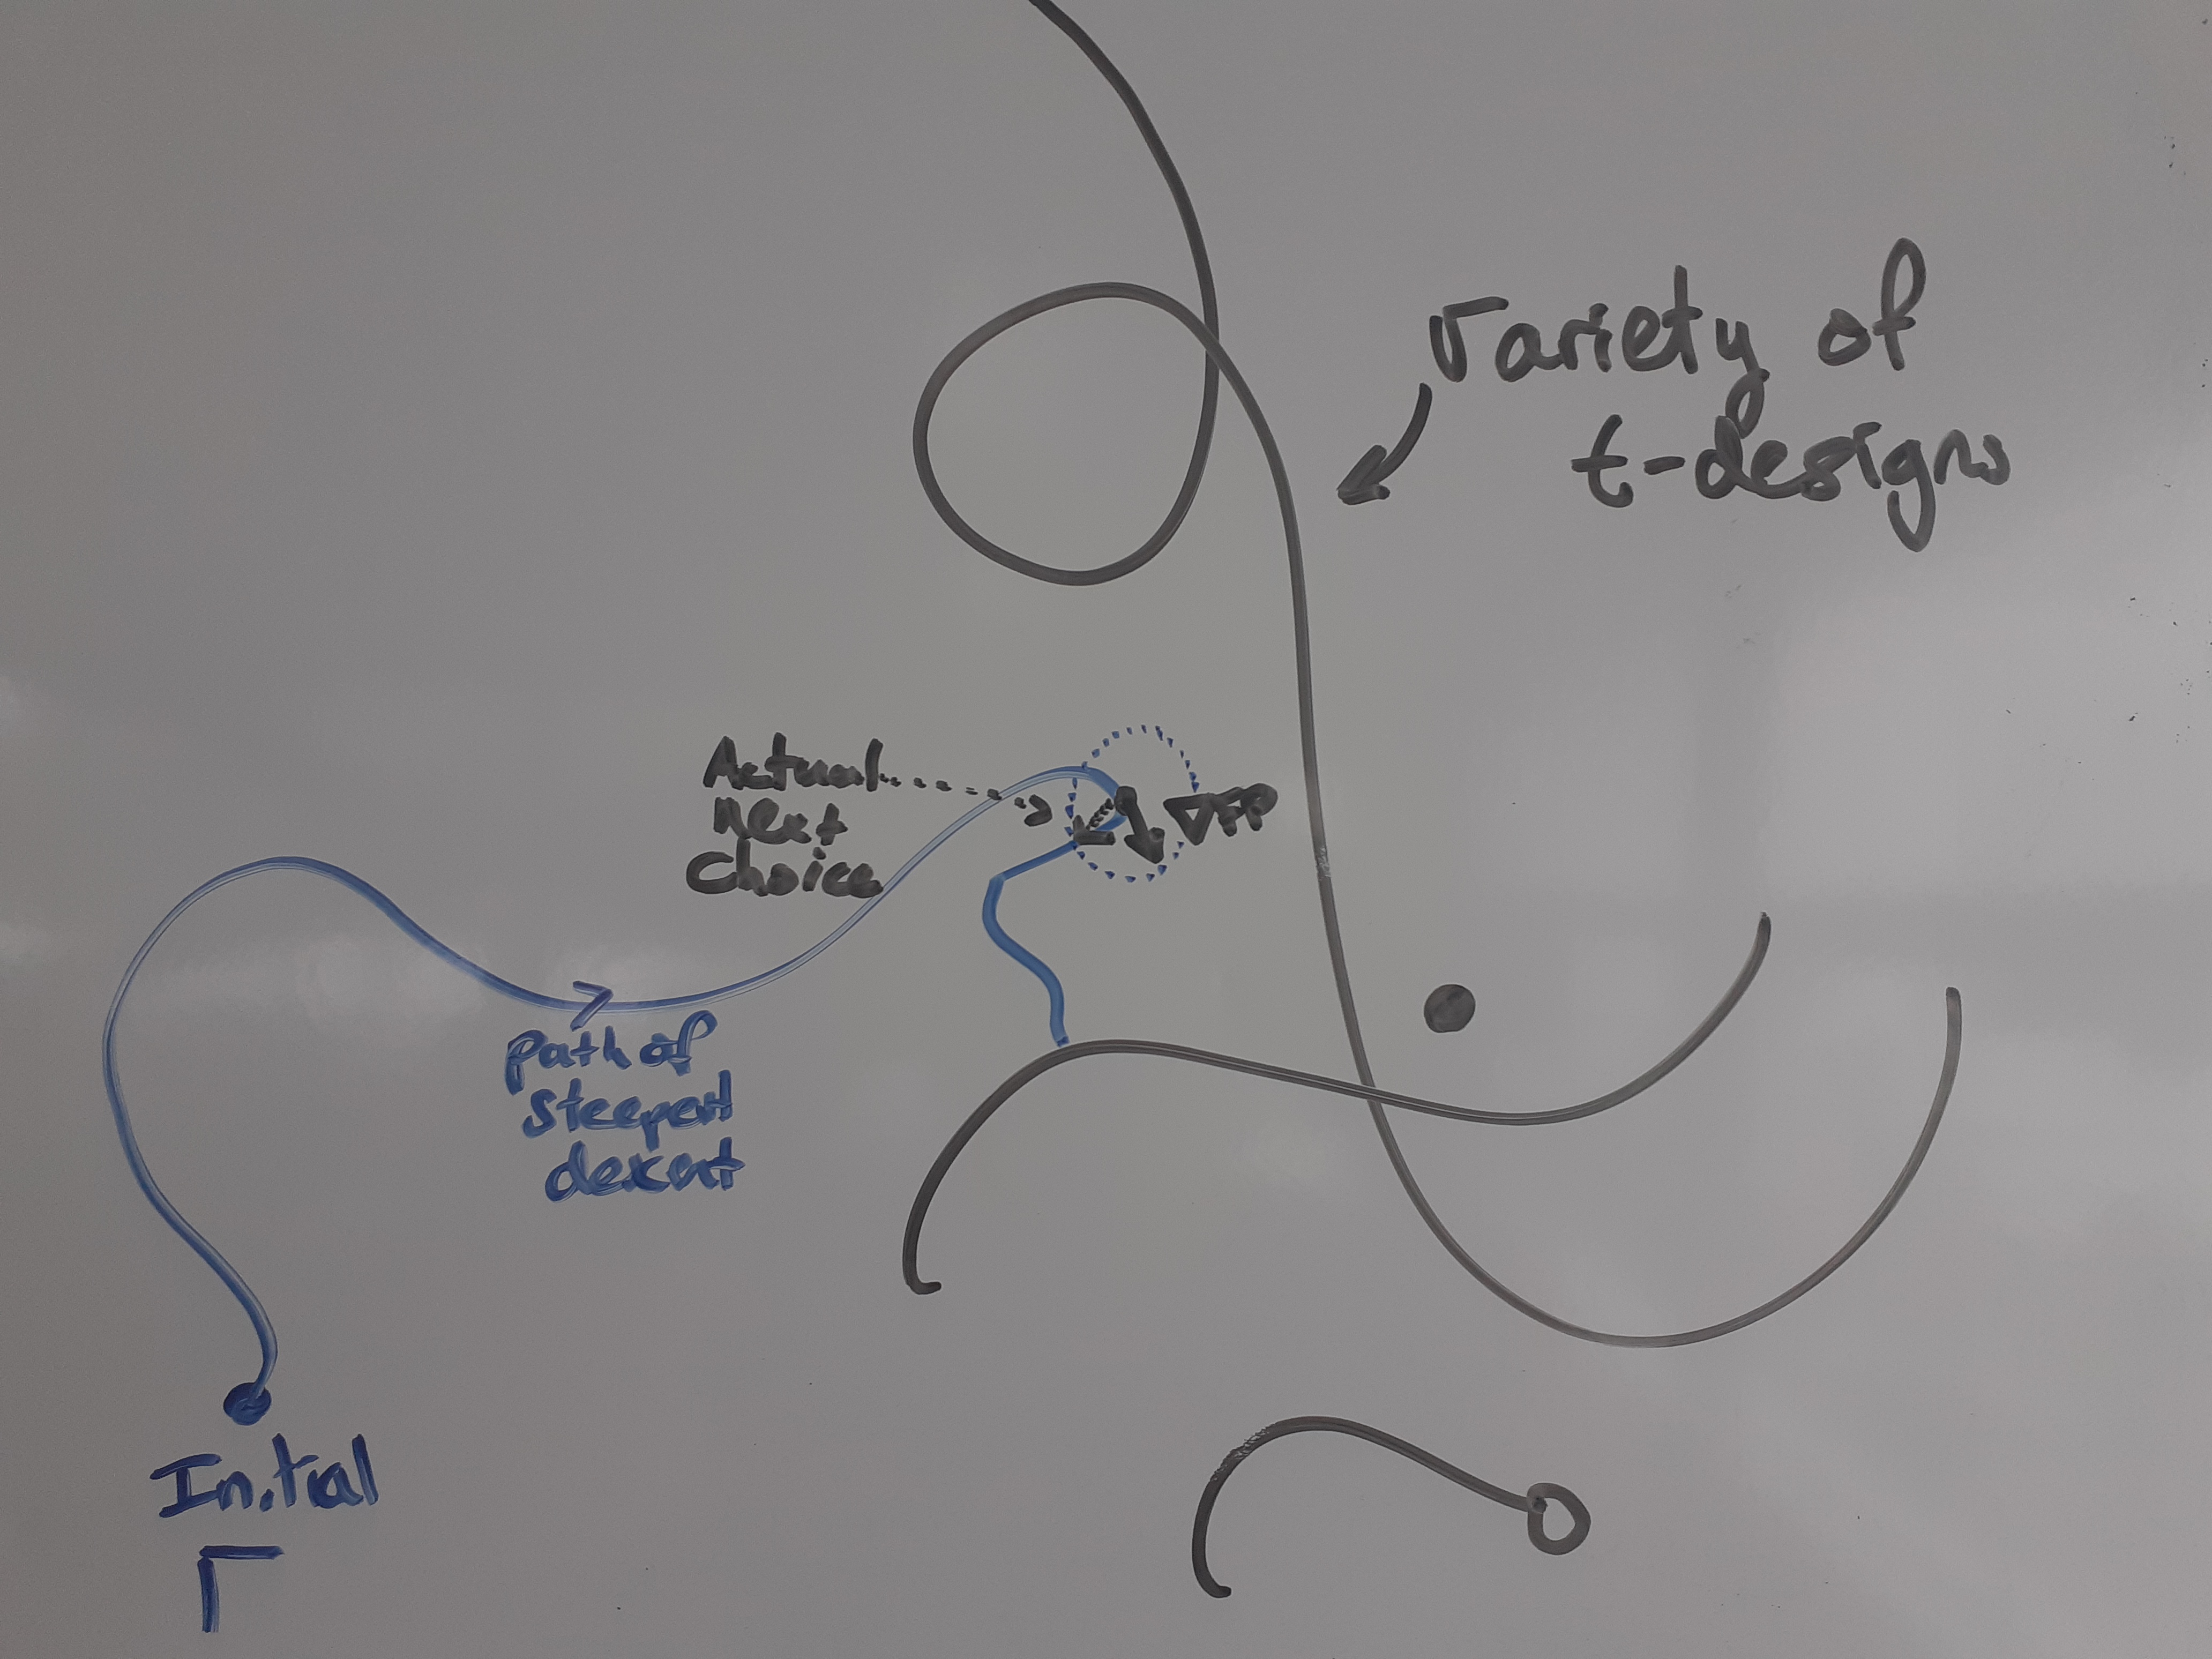 Variety of
t-designs
Actual
Next
Choice
∇FP
path of
steepest
descent
Initial
Γ